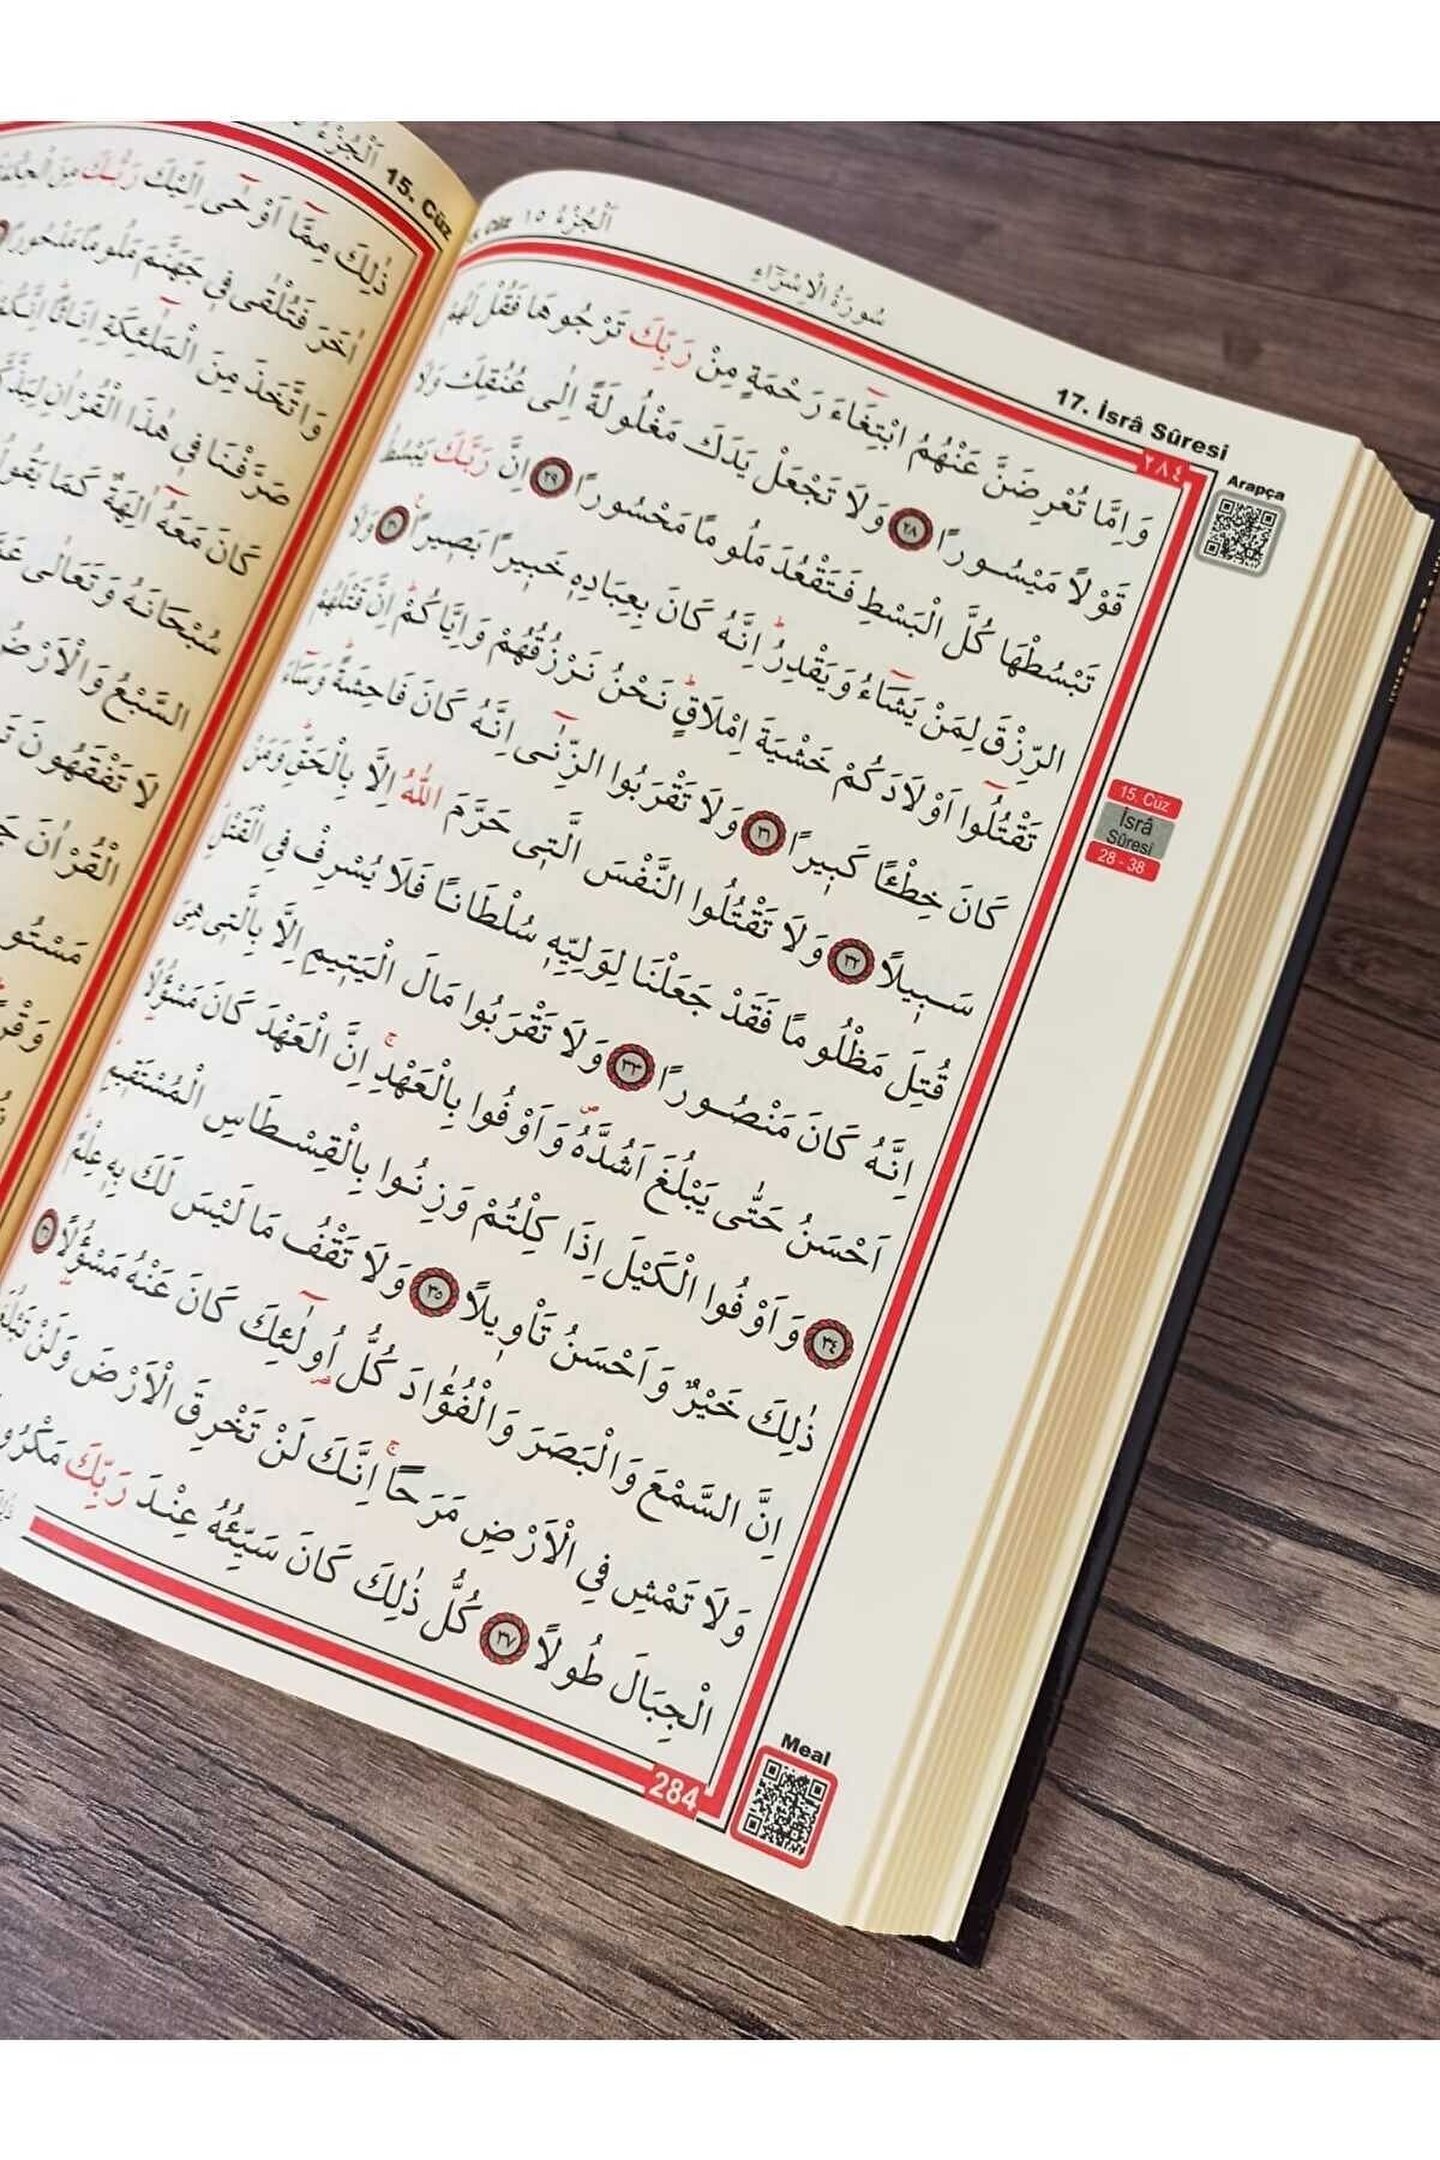 اَلْجُزْءُ ١٥
سُورَةُ الْاِسْرَٓاءِ
17. İsrâ Sûresi
٢٨٤
Arapça
وَاِمَّا تُعْرِضَنَّ عَنْهُمُ ابْتِغَٓاءَ رَحْمَةٍ مِنْ رَبِّكَ تَرْجُوهَا فَقُلْ لَهُمْ
قَوْلًا مَيْسُورًا ٢٨ وَلَا تَجْعَلْ يَدَكَ مَغْلُولَةً اِلٰى عُنُقِكَ وَلَا
تَبْسُطْهَا كُلَّ الْبَسْطِ فَتَقْعُدَ مَلُومًا مَحْسُورًا ٢٩ اِنَّ رَبَّكَ يَبْسُطُ
الرِّزْقَ لِمَنْ يَشَٓاءُ وَيَقْدِرُؕ اِنَّهُ كَانَ بِعِبَادِهٖ خَبٖيرًا بَصٖيرًا ٣٠ وَلَا
تَقْتُلُٓوا اَوْلَادَكُمْ خَشْيَةَ اِمْلَاقٍؕ نَحْنُ نَرْزُقُهُمْ وَاِيَّاكُمْؕ اِنَّ قَتْلَهُمْ
كَانَ خِطْـًٔا كَبٖيرًا ٣١ وَلَا تَقْرَبُوا الزِّنٰٓى اِنَّهُ كَانَ فَاحِشَةًؕ وَسَٓاءَ
سَبٖيلًا ٣٢ وَلَا تَقْتُلُوا النَّفْسَ الَّتٖى حَرَّمَ اللّٰهُ اِلَّا بِالْحَقِّؕ وَمَنْ
قُتِلَ مَظْلُومًا فَقَدْ جَعَلْنَا لِوَلِيِّهٖ سُلْطَانًا فَلَا يُسْرِفْ فِى الْقَتْلِؕ
اِنَّهُ كَانَ مَنْصُورًا ٣٣ وَلَا تَقْرَبُوا مَالَ الْيَتٖيمِ اِلَّا بِالَّتٖى هِىَ
اَحْسَنُ حَتّٰى يَبْلُغَ اَشُدَّهُࣕ وَاَوْفُوا بِالْعَهْدِۚ اِنَّ الْعَهْدَ كَانَ مَسْؤُ۫لًا
٣٤ وَاَوْفُوا الْكَيْلَ اِذَا كِلْتُمْ وَزِنُوا بِالْقِسْطَاسِ الْمُسْتَقٖيمِؕ
ذٰلِكَ خَيْرٌ وَاَحْسَنُ تَأْوٖيلًا ٣٥ وَلَا تَقْفُ مَا لَيْسَ لَكَ بِهٖ عِلْمٌؕ
اِنَّ السَّمْعَ وَالْبَصَرَ وَالْفُؤٰادَ كُلُّ اُو۬لٰٓئِكَ كَانَ عَنْهُ مَسْؤُ۫لًا
وَلَا تَمْشِ فِى الْاَرْضِ مَرَحًاۚ اِنَّكَ لَنْ تَخْرِقَ الْاَرْضَ وَلَنْ
الْجِبَالَ طُولًا ٣٧ كُلُّ ذٰلِكَ كَانَ سَيِّئُهُ عِنْدَ رَبِّكَ
15. Cüz
İsrâ
Sûresi
28 - 38
284
Meal
اَلْجُزْءُ
15. Cüz
ذٰلِكَ مِمَّٓا اَوْحٰٓى اِلَيْكَ رَبُّكَ مِنَ
اٰخَرَ فَتُلْقٰى فٖى جَهَنَّمَ مَلُومًا مَدْحُورًا
وَاتَّخَذَ مِنَ الْمَلٰٓئِكَةِ اِنَاثًاؕ
صَرَّفْنَا فٖى هٰذَا الْقُرْاٰنِ
كَانَ مَعَهُٓ اٰلِهَةٌ كَمَا
سُبْحَانَهُ وَتَعَالٰى
السَّبْعُ وَالْاَرْضُ
لَا تَفْقَهُونَ
الْقُرْاٰنَ